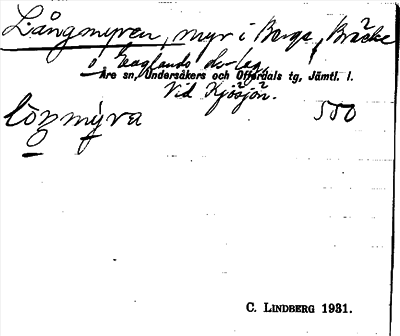 Långmyren, myr i Berge, Bräcke
o. Englands
Åre sn, Undersåkers och Offerdals tg, Jämtl. l.
Vid Kjösjön.
lòŋmýra 550
C. LINDBERG 1931.